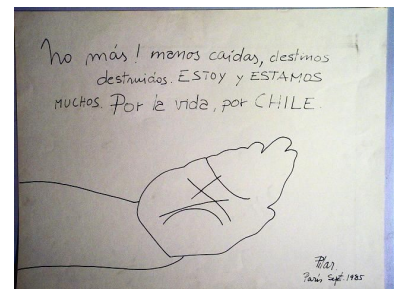 No más! manos caídas, destinos
destruidos. ESTOY y ESTAMOS
MUCHOS. Por la vida, por CHILE.
Pilar.
París Sept. 1985